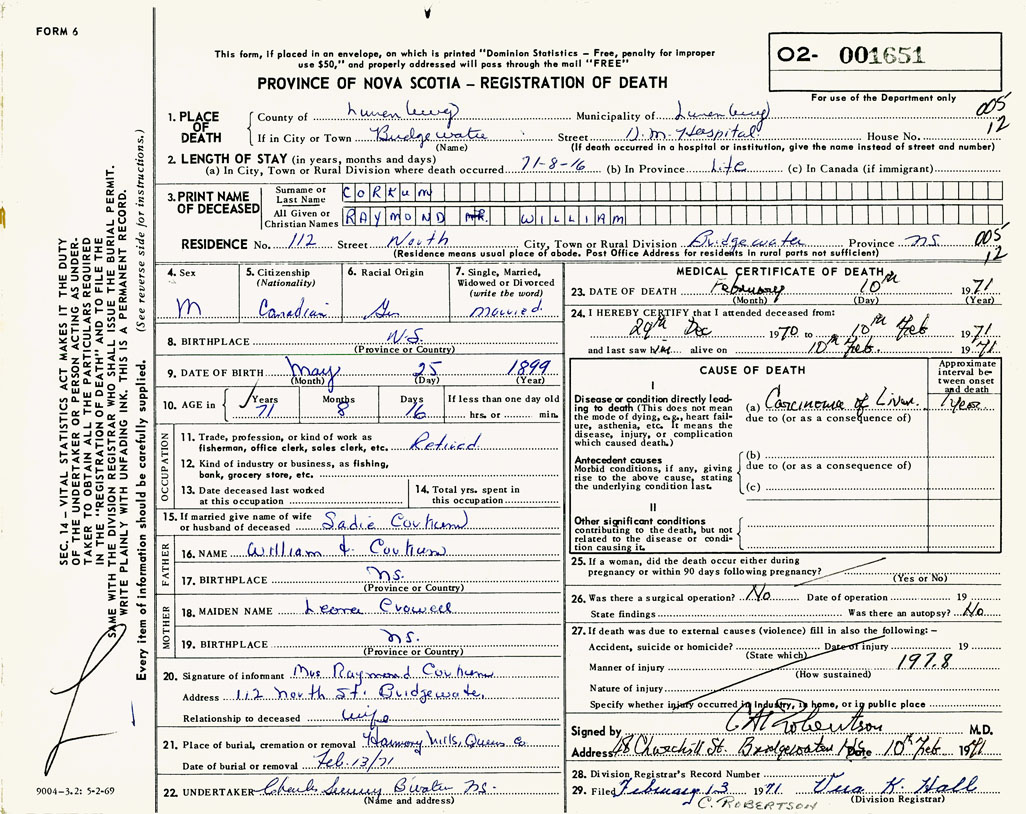 FORM 6
This form, if placed in an envelope, on which is printed "Dominion Statistics – Free, penalty for improper
use $50," and properly addressed will pass through the mail "FREE"
PROVINCE OF NOVA SCOTIA – REGISTRATION OF DEATH
O2- 001651
For use of the Department only
005
12
1. PLACE OF DEATH
County of Lunenburg Municipality of Lunenburg
If in City or Town Bridgewater Street D. M. Hospital House No.
(Name) (If death occurred in a hospital or institution, give the name instead of street and number)
2. LENGTH OF STAY (in years, months and days)
(a) In City, Town or Rural Division where death occurred 71-8-16 (b) In Province Life (c) In Canada (if immigrant)
3. PRINT NAME OF DECEASED
Surname or Last Name CORKUM
All Given or Christian Names RAYMOND WILLIAM
RESIDENCE No. 112 Street North City, Town or Rural Division Bridgewater Province NS.
005
12
(Residence means usual place of abode. Post Office Address for residents in rural parts not sufficient)
4. Sex
M
5. Citizenship
(Nationality)
Canadian
6. Racial Origin
Ger
7. Single, Married,
Widowed or Divorced
(write the word)
Married.
8. BIRTHPLACE N.S.
(Province or Country)
9. DATE OF BIRTH May 25 1899
(Month) (Day) (Year)
10. AGE in Years 71 Months 8 Days 16 If less than one day old
hrs. or min.
OCCUPATION
11. Trade, profession, or kind of work as
fisherman, office clerk, sales clerk, etc. Retired
12. Kind of industry or business, as fishing,
bank, grocery store, etc.
13. Date deceased last worked
at this occupation
14. Total yrs. spent in
this occupation
15. If married give name of wife
or husband of deceased Sadie Corkum
FATHER
16. NAME William Corkum
17. BIRTHPLACE NS.
(Province or Country)
MOTHER
18. MAIDEN NAME Leora Crowell
19. BIRTHPLACE NS.
(Province or Country)
20. Signature of informant Mrs Raymond Corkum
Address 112 North St. Bridgewater,
Relationship to deceased wife
21. Place of burial, cremation or removal Harmony Mills, Queens Co
Date of burial or removal Feb. 13/71
22. UNDERTAKER Charles B'water NS.
(Name and address)
MEDICAL CERTIFICATE OF DEATH
23. DATE OF DEATH February 10th 1971
(Month) (Day) (Year)
24. I HEREBY CERTIFY that I attended deceased from:
29th Dec 1970 to 10th Feb 1971
and last saw him alive on 10th Feb. 1971
CAUSE OF DEATH
Approximate
interval be-
tween onset
and death
I
Disease or condition directly lead-
ing to death (This does not
mean the mode of dying, e.g., heart fail-
ure, asthenia, etc. It means the
disease, injury, or complication
which caused death.)
(a) Carcinoma of Liver. 1 year
due to (or as a consequence of)
Antecedent causes
Morbid conditions, if any, giving
rise to the above cause, stating
the underlying condition last.
(b)
due to (or as a consequence of)
(c)
II
Other significant conditions
contributing to the death, but not
related to the disease or condi-
tion causing it.
25. If a woman, did the death occur either during
pregnancy or within 90 days following pregnancy?
(Yes or No)
26. Was there a surgical operation? No Date of operation 19
State findings Was there an autopsy? No
27. If death was due to external causes (violence) fill in also the following: –
Accident, suicide or homicide? Date of injury 19
(State which)
Manner of injury 197.8
(How sustained)
Nature of injury
Specify whether injury occurred in industry, in home, or in public place
Signed by C H Robertson M.D.
Address 18 Churchill St. Bridgewater NS Date 10th Feb 1971
28. Division Registrar's Record Number
29. Filed February 13 1971 Vera K. Hall
(Division Registrar)
C. ROBERTSON
SEC. 14 – VITAL STATISTICS ACT MAKES IT THE DUTY
OF THE UNDERTAKER OR PERSON ACTING AS UNDER-
TAKER TO OBTAIN ALL THE PARTICULARS REQUIRED
IN THE "REGISTRATION OF DEATH" AND TO FILE THE
SAME WITH THE DIVISION REGISTRAR WHO SHALL ISSUE THE BURIAL PERMIT.
WRITE PLAINLY WITH UNFADING INK. THIS IS A PERMANENT RECORD.
Every item of information should be carefully supplied. (See reverse side for instructions.)
9004-3.2: 5-2-69